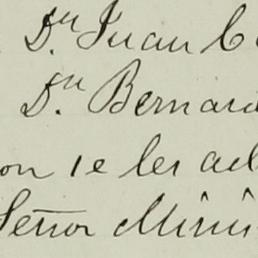 Dn Juan C
Dn Bernar
on se les ad
Señor Minis